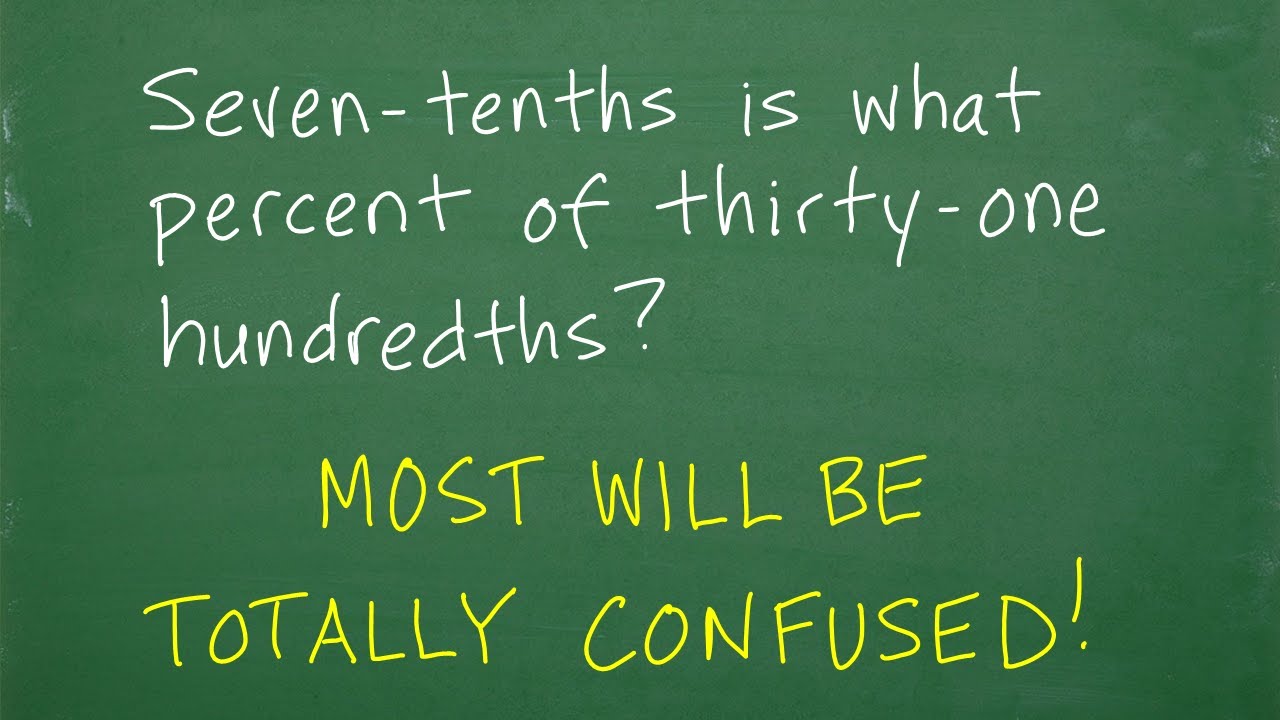 Seven-tenths is what
percent of thirty-one
hundredths?
MOST WILL BE
TOTALLY CONFUSED!